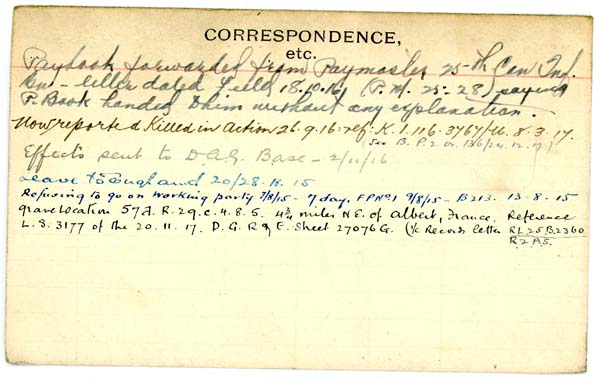 CORRESPONDENCE,
etc.
Paybook forwarded from Paymaster 25-th Can Inf.
Bn - letter dated Field 18.10.16, (P.M. 25-28) saying
P. Book handed to him without any explanation.
Now reported Killed in Action 26.9.16. ref: K.1.116.3767/16. 8.3.17.
See B.P.2
Effects sent to D.A.G. Base - 2/11/16
Leave to England 20/28.11.15
Refusing to go on working party 7/8/15 - 7 days FP No 1 9/8/15 - B213. 13-8-15
Grave location 57d. R.29.c.4.8.5. 4¾ miles N.E. of Albert, France. Reference
L.S. 3177 of the 20.11.17. D.G.R & E. Sheet 27076G. (1/c Records letter RL25B2360